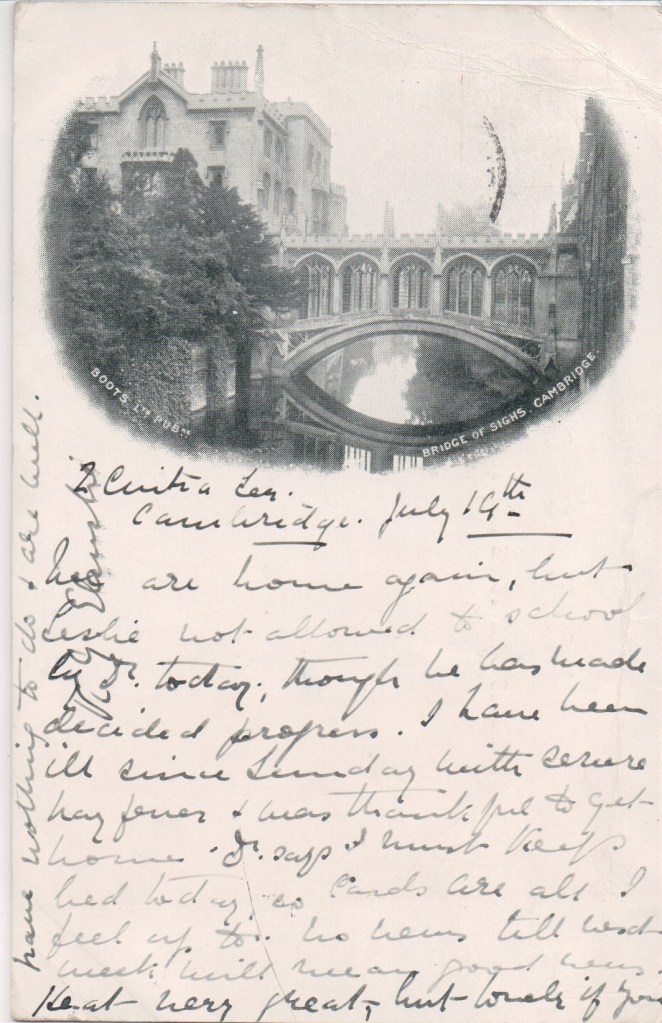 BOOTS LTD PUBRS
BRIDGE OF SIGHS, CAMBRIDGE
2 Cintra Ter.
Cambridge. July 19th
We are home again, but
Leslie not allowed to school
by Dr. today, though he has made
decided progress. I have been
ill since Sunday with severe
hay fever & was thankful to get
home. Dr. says I must keep
bed today, so cards are all I
feel up to. No news till next
week will mean good news.
Heat very great, but lovely if you
have nothing to do & are well.